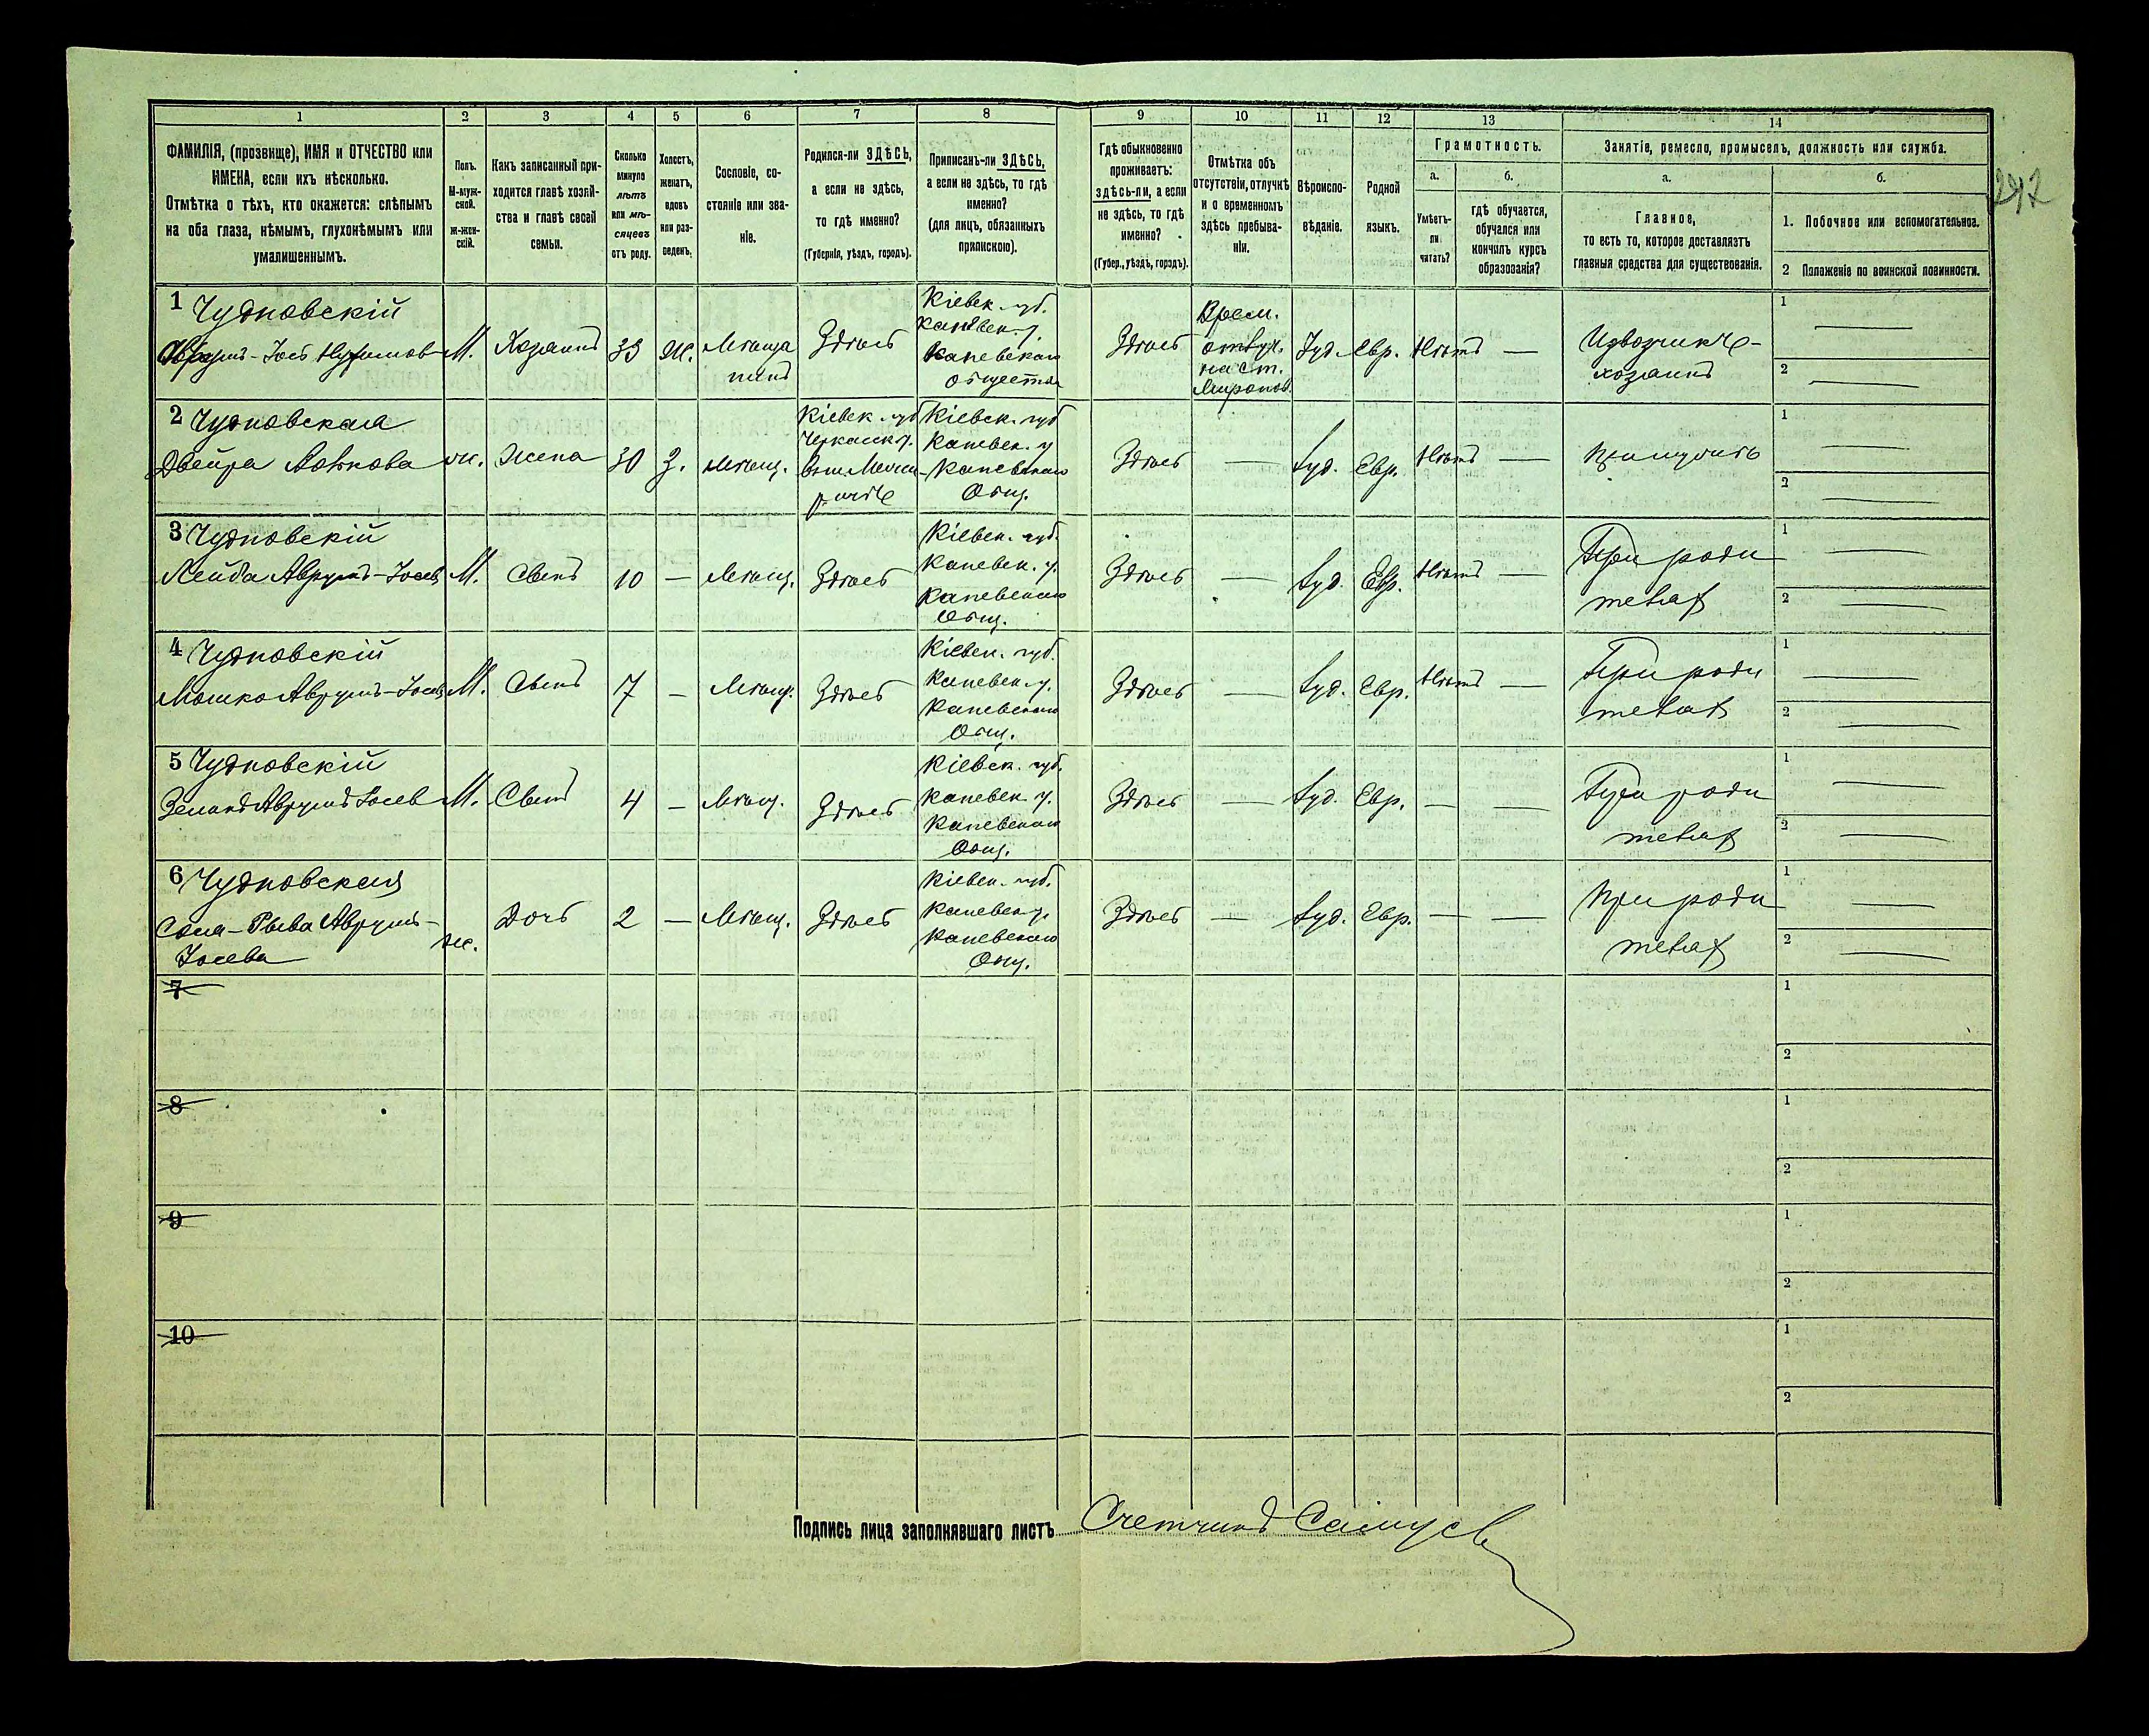 1 2 3 4 5 6 7 8 9 10 11 12 13 14
ФАМИЛІЯ, (прозвище), ИМЯ и ОТЧЕСТВО или
ИМЕНА, если ихъ нѣсколько.
Отмѣтка о тѣхъ, кто окажется: слѣпымъ
на оба глаза, нѣмымъ, глухонѣмымъ или
умалишеннымъ.
Полъ.
М-муж-
ской.
ж-жен-
скій.
Какъ записанный при-
ходится главѣ хозяй-
ства и главѣ своей
семьи.
Сколько
минуло
лѣтъ
или мѣ-
сяцевъ
отъ роду.
Холостъ,
женатъ,
вдовъ
или раз-
веденъ.
Сословіе, со-
стояніе или зва-
ніе.
Родился-ли ЗДѢСЬ,
а если не здѣсь,
то гдѣ именно?
(Губернія, уѣздъ, городъ).
Приписанъ-ли ЗДѢСЬ,
а если не здѣсь, то гдѣ
именно?
(для лицъ, обязанныхъ
припискою).
Гдѣ обыкновенно
проживаетъ:
здѣсь-ли, а если
не здѣсь, то гдѣ
именно?
(Губер., уѣздъ, городъ).
Отмѣтка объ
отсутствіи, отлучкѣ
и о временномъ
здѣсь пребыва-
ніи.
Вѣроиспо-
вѣданіе.
Родной
языкъ.
Грамотность.
а.
Умѣетъ-
ли
читать?
б.
гдѣ обучается,
обучался или
кончилъ курсъ
образованія?
Занятіе, ремесло, промыселъ, должность или служба.
а.
Главное,
то есть то, которое доставляетъ
главныя средства для существованія.
б.
1. Побочное или вспомогательное.
2 Положеніе по воинской повинности.
242
1 Чудновскій
Аврумъ-Іось М. Хозяинъ 35 ж. Мѣща
нинъ
Здѣсь
Кіевск. губ.
Каневск. у.
Каневскаго
общества
Здѣсь
Врем.
отлуч.
на ст.
Миронов.
Іуд. Евр. Нѣтъ —
Извозчикъ-
хозяинъ
1 —
2 —
2 Чудновская
Двейра ж. Жена 30 З. Мѣщ.
Кіевск. губ
Черкасск. у.
Кіевск. губ
Каневск. у
Каневскаго
Общ.
Здѣсь — Іуд. Евр. Нѣтъ —
При мужѣ
1 —
2 —
3 Чудновскій
Лейба Аврумъ-Іосев М. Сынъ 10 — Мѣщ. Здѣсь
Кіевск. губ.
Каневск. у.
Каневскаго
Общ.
Здѣсь — Іуд. Евр. Нѣтъ —
При роди
теляхъ
1 —
2 —
4 Чудновскій
Мошко Аврумъ-Іосев М. Сынъ 7 — Мѣщ. Здѣсь
Кіевск. губ.
Каневск. у.
Каневскаго
Общ.
Здѣсь — Іуд. Евр. Нѣтъ —
При роди
теляхъ
1 —
2 —
5 Чудновскій
Аврумъ Іосев М. Сынъ 4 — Мѣщ. Здѣсь
Кіевск. губ.
Каневск. у.
Каневскаго
Общ.
Здѣсь — Іуд. Евр. — —
При роди
теляхъ
1 —
2 —
6 Чудновская
Рыва Аврумъ-
Іосева
ж. Дочь 2 — Мѣщ. Здѣсь
Кіевск. губ.
Каневск. у.
Каневскаго
Общ.
Здѣсь — Іуд. Евр. — —
При роди
теляхъ
1 —
2 —
7
1
2
8
1
2
9
1
2
10
1
2
Подпись лица заполнявшаго листъ Счетчикъ